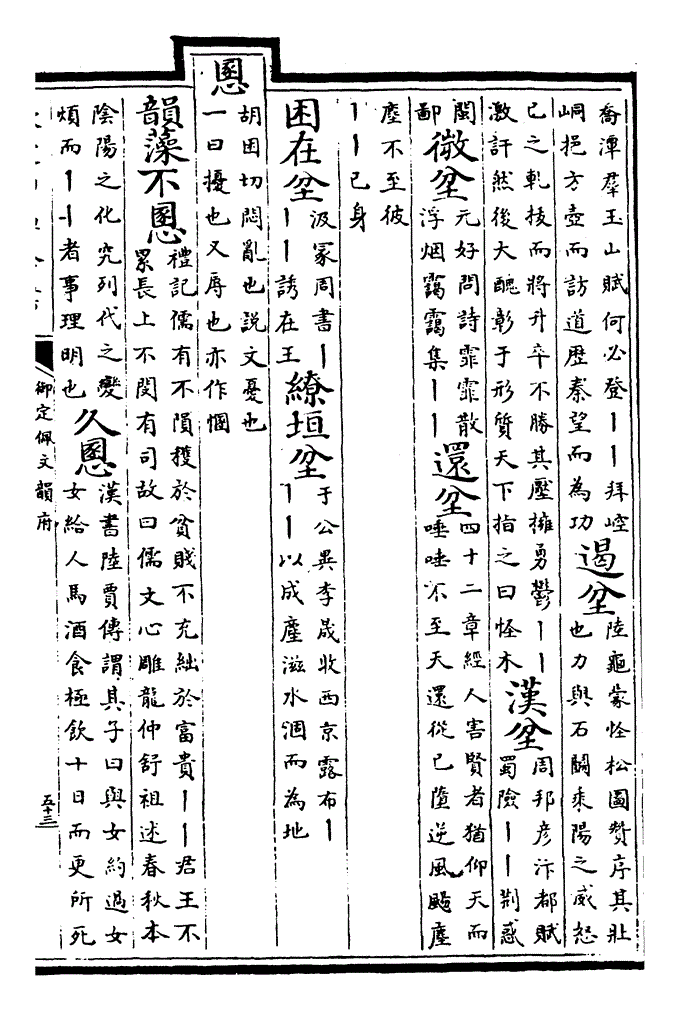 喬潭羣玉山賦何必登丨丨拜崆
峒挹方壺而訪道歷秦望而為功
遏坌
陸龜蒙怪松圖贊序其壯
也力與石鬭乘陽之威怒
己之軋拔而將升卒不勝其壓擁勇鬱丨丨
激訐然後大醜彰于形質天下指之曰怪木
漢坌
周邦彦汴都賦
蜀險丨丨荆惑
閩
鄙
微坌
元好問詩霏霏散
浮烟靄靄集丨丨
還坌
四十二章經人害賢者猶仰天而
唾唾不至天還從己墮逆風颺塵
塵不至彼
丨丨己身
困在坌
汲冢周書丨
丨丨誘在王
繚垣坌
于公異李晟收西京露布丨
丨丨以成塵滋水涸而為地
慁
胡困切悶亂也説文憂也
一曰擾也又辱也亦作
韻藻
不慁
禮記儒有不隕穫於貧賤不充絀於富貴丨丨君王不
累長上不閔有司故曰儒文心雕龍仲舒祖述春秋本
陰陽之化究列代之變
煩而丨丨者事理明也
久慁
漢書陸賈傳謂其子曰與女約過女
女給人馬酒食極飲十日而更所死
御定佩文韻府
五十三